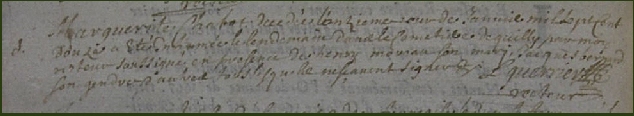 d. Marguerite Chabot decedée l'onzieme jour de Janvie mil sept cent
douze a eté inhumée le lendemain dans le cimetiere de quilly par moy
recteur soussigné en presence de henry moreau son mary, Jacques
son gendre d'autres lesquels ne scavent signer Lguerriff
recteur